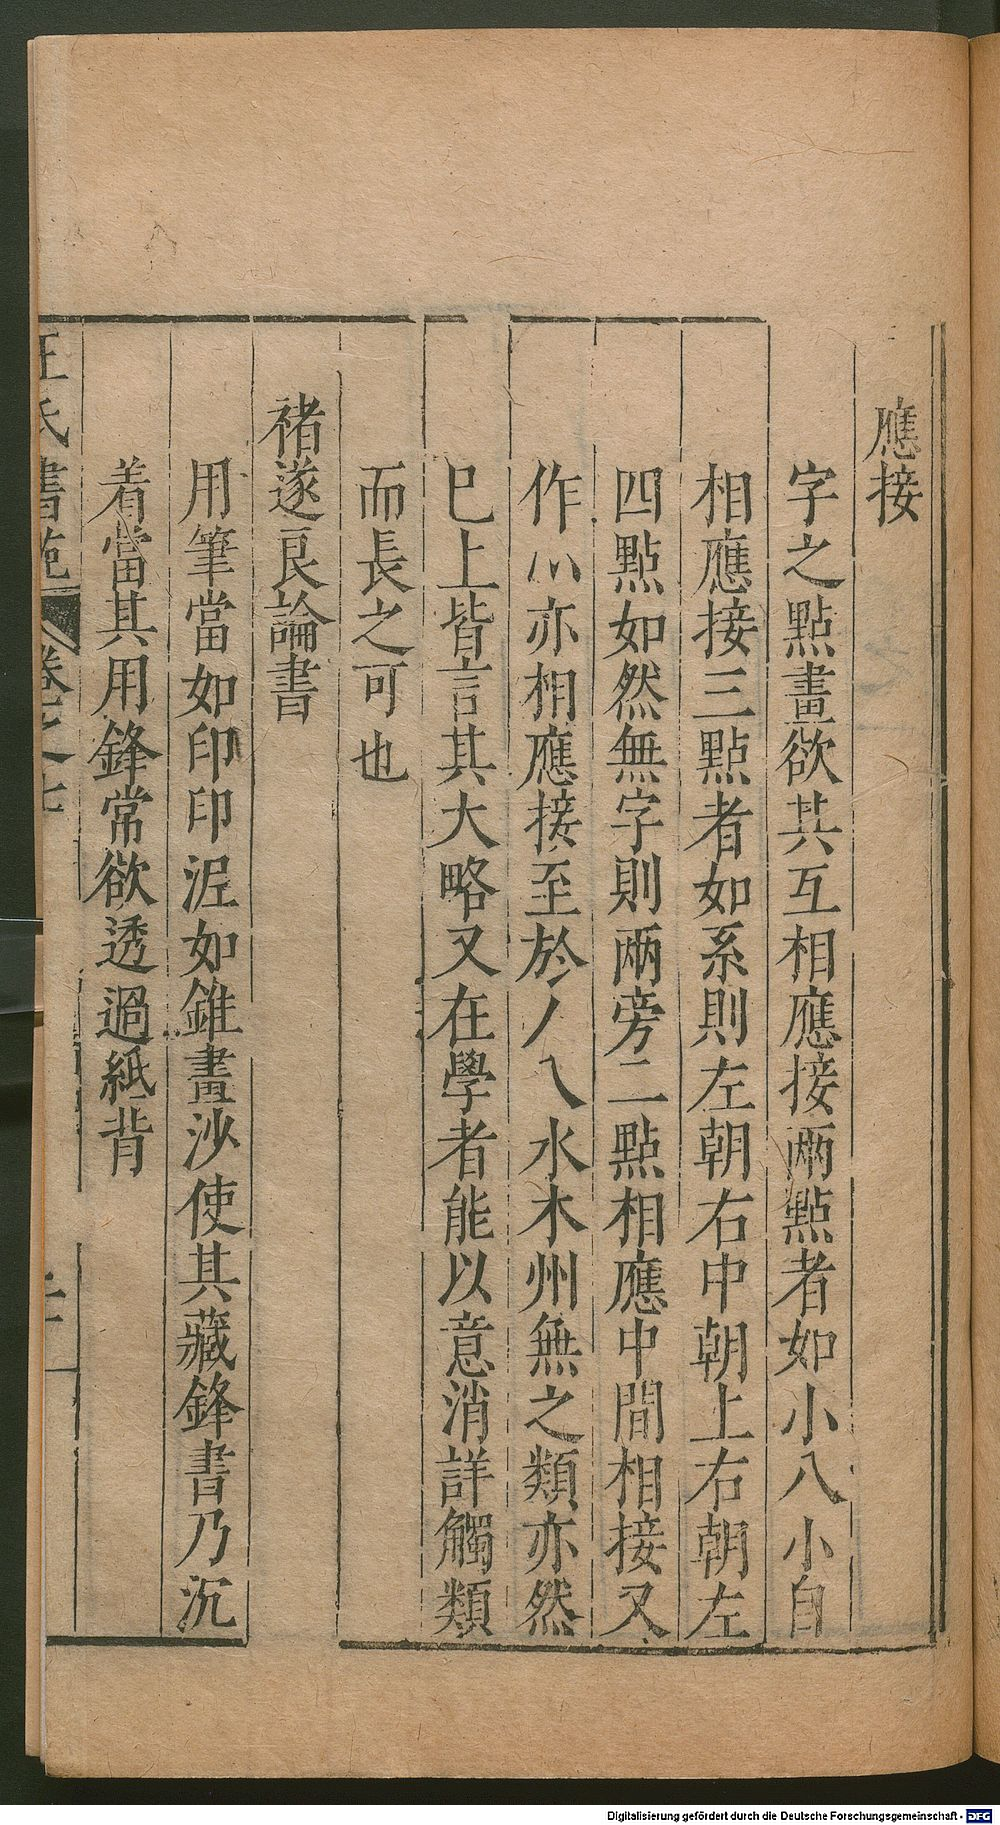 應接
字之點畫欲其互相應接兩點者如小八小自
相應接三點者如系則左朝右中朝上右朝左
四點如然無字則兩旁二點相應中間相接又
作灬亦相應接至於丿乀水木州無之類亦然
巳上皆言其大略又在學者能以意消詳觸類
而長之可也
褚遂良論書
用筆當如印印泥如錐畫沙使其藏鋒書乃沉
着當其用鋒常欲透過紙背
王氏書苑 卷之七
Digitalisierung gefördert durch die Deutsche Forschungsgemeinschaft - DFG